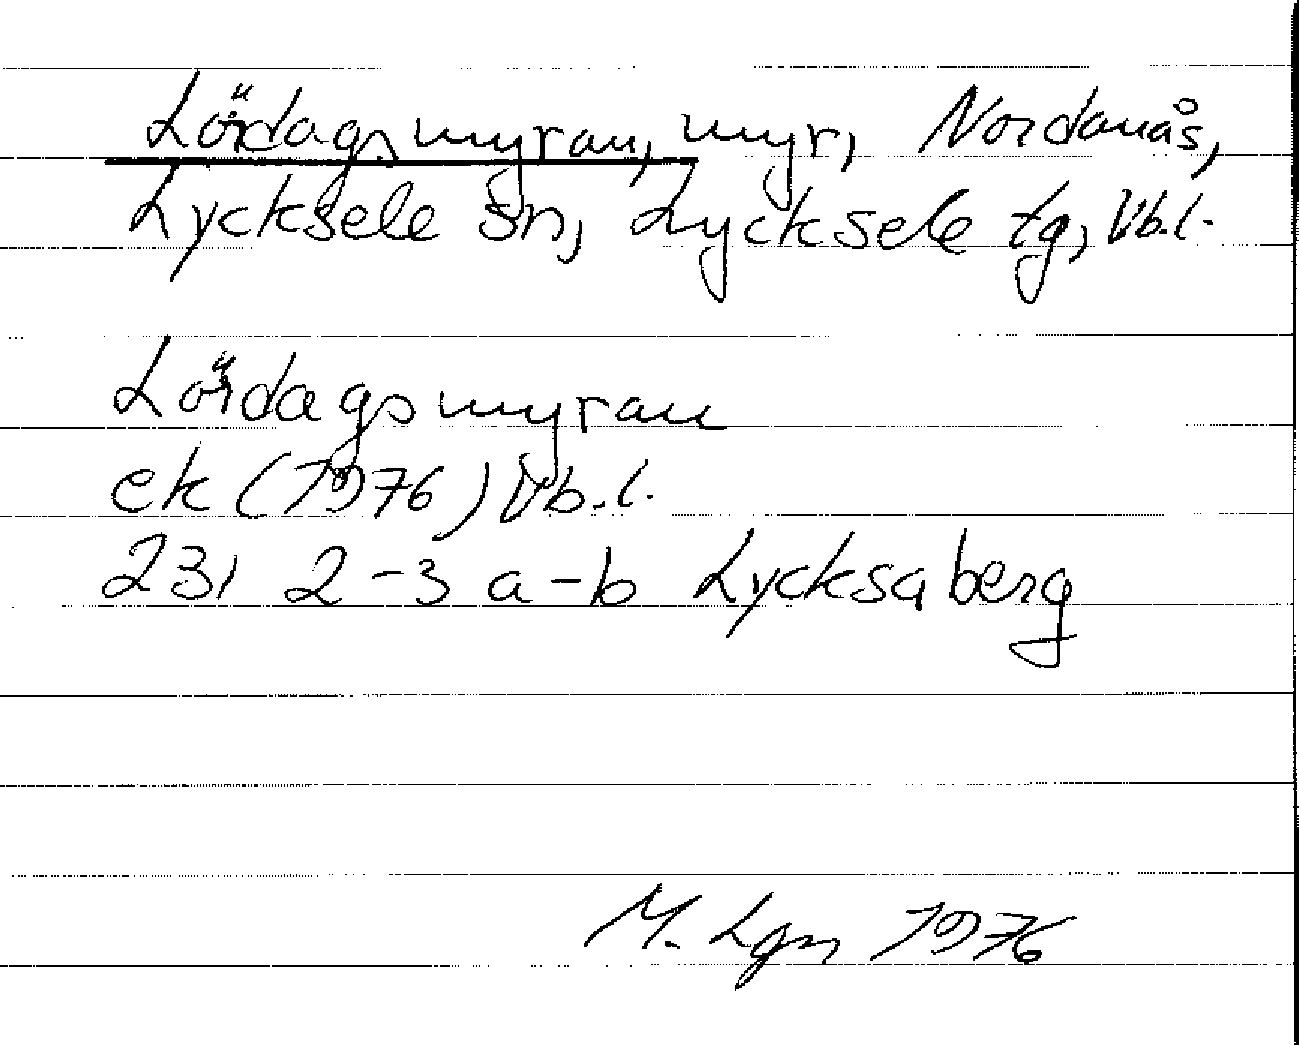 Lördagsmyran, myr, Nordanås,
Lycksele sn, Lycksele tg, Vb.l.
Lördagsmyran
ek (1976) Vb.l.
23I 2-3 a-b Lycksaberg
M. Lgn 1976